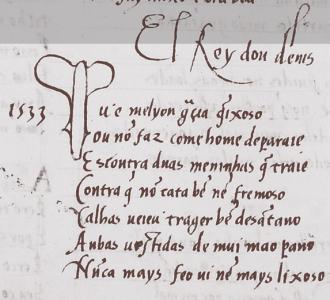 El Rey don denis
1533 u e melyon g̃çia q̃ixoso
ou nõ faz come home de paraie
Escontra duas meninhas q̃ traie
Contra q̃ nõ cata bẽ nẽ fremoso
Calhas ueieu trager bẽ desãtano
Anbas uestidas de mui mao pano
Nũca mays feo ui nẽ mays lixoso